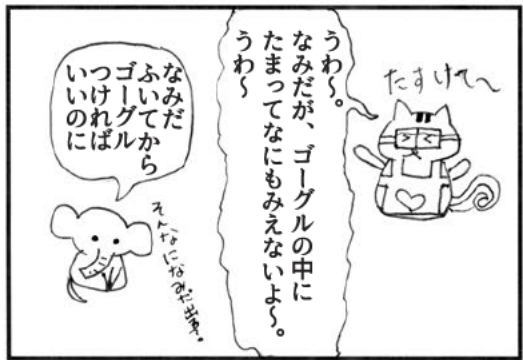 たすけて〜
うわ〜。
なみだが、ゴーグルの中に
たまってなにもみえないよ〜。
うわ〜
なみだ
ふいてから
ゴーグル
つければ
いいのに
そんなになみだ出るの。